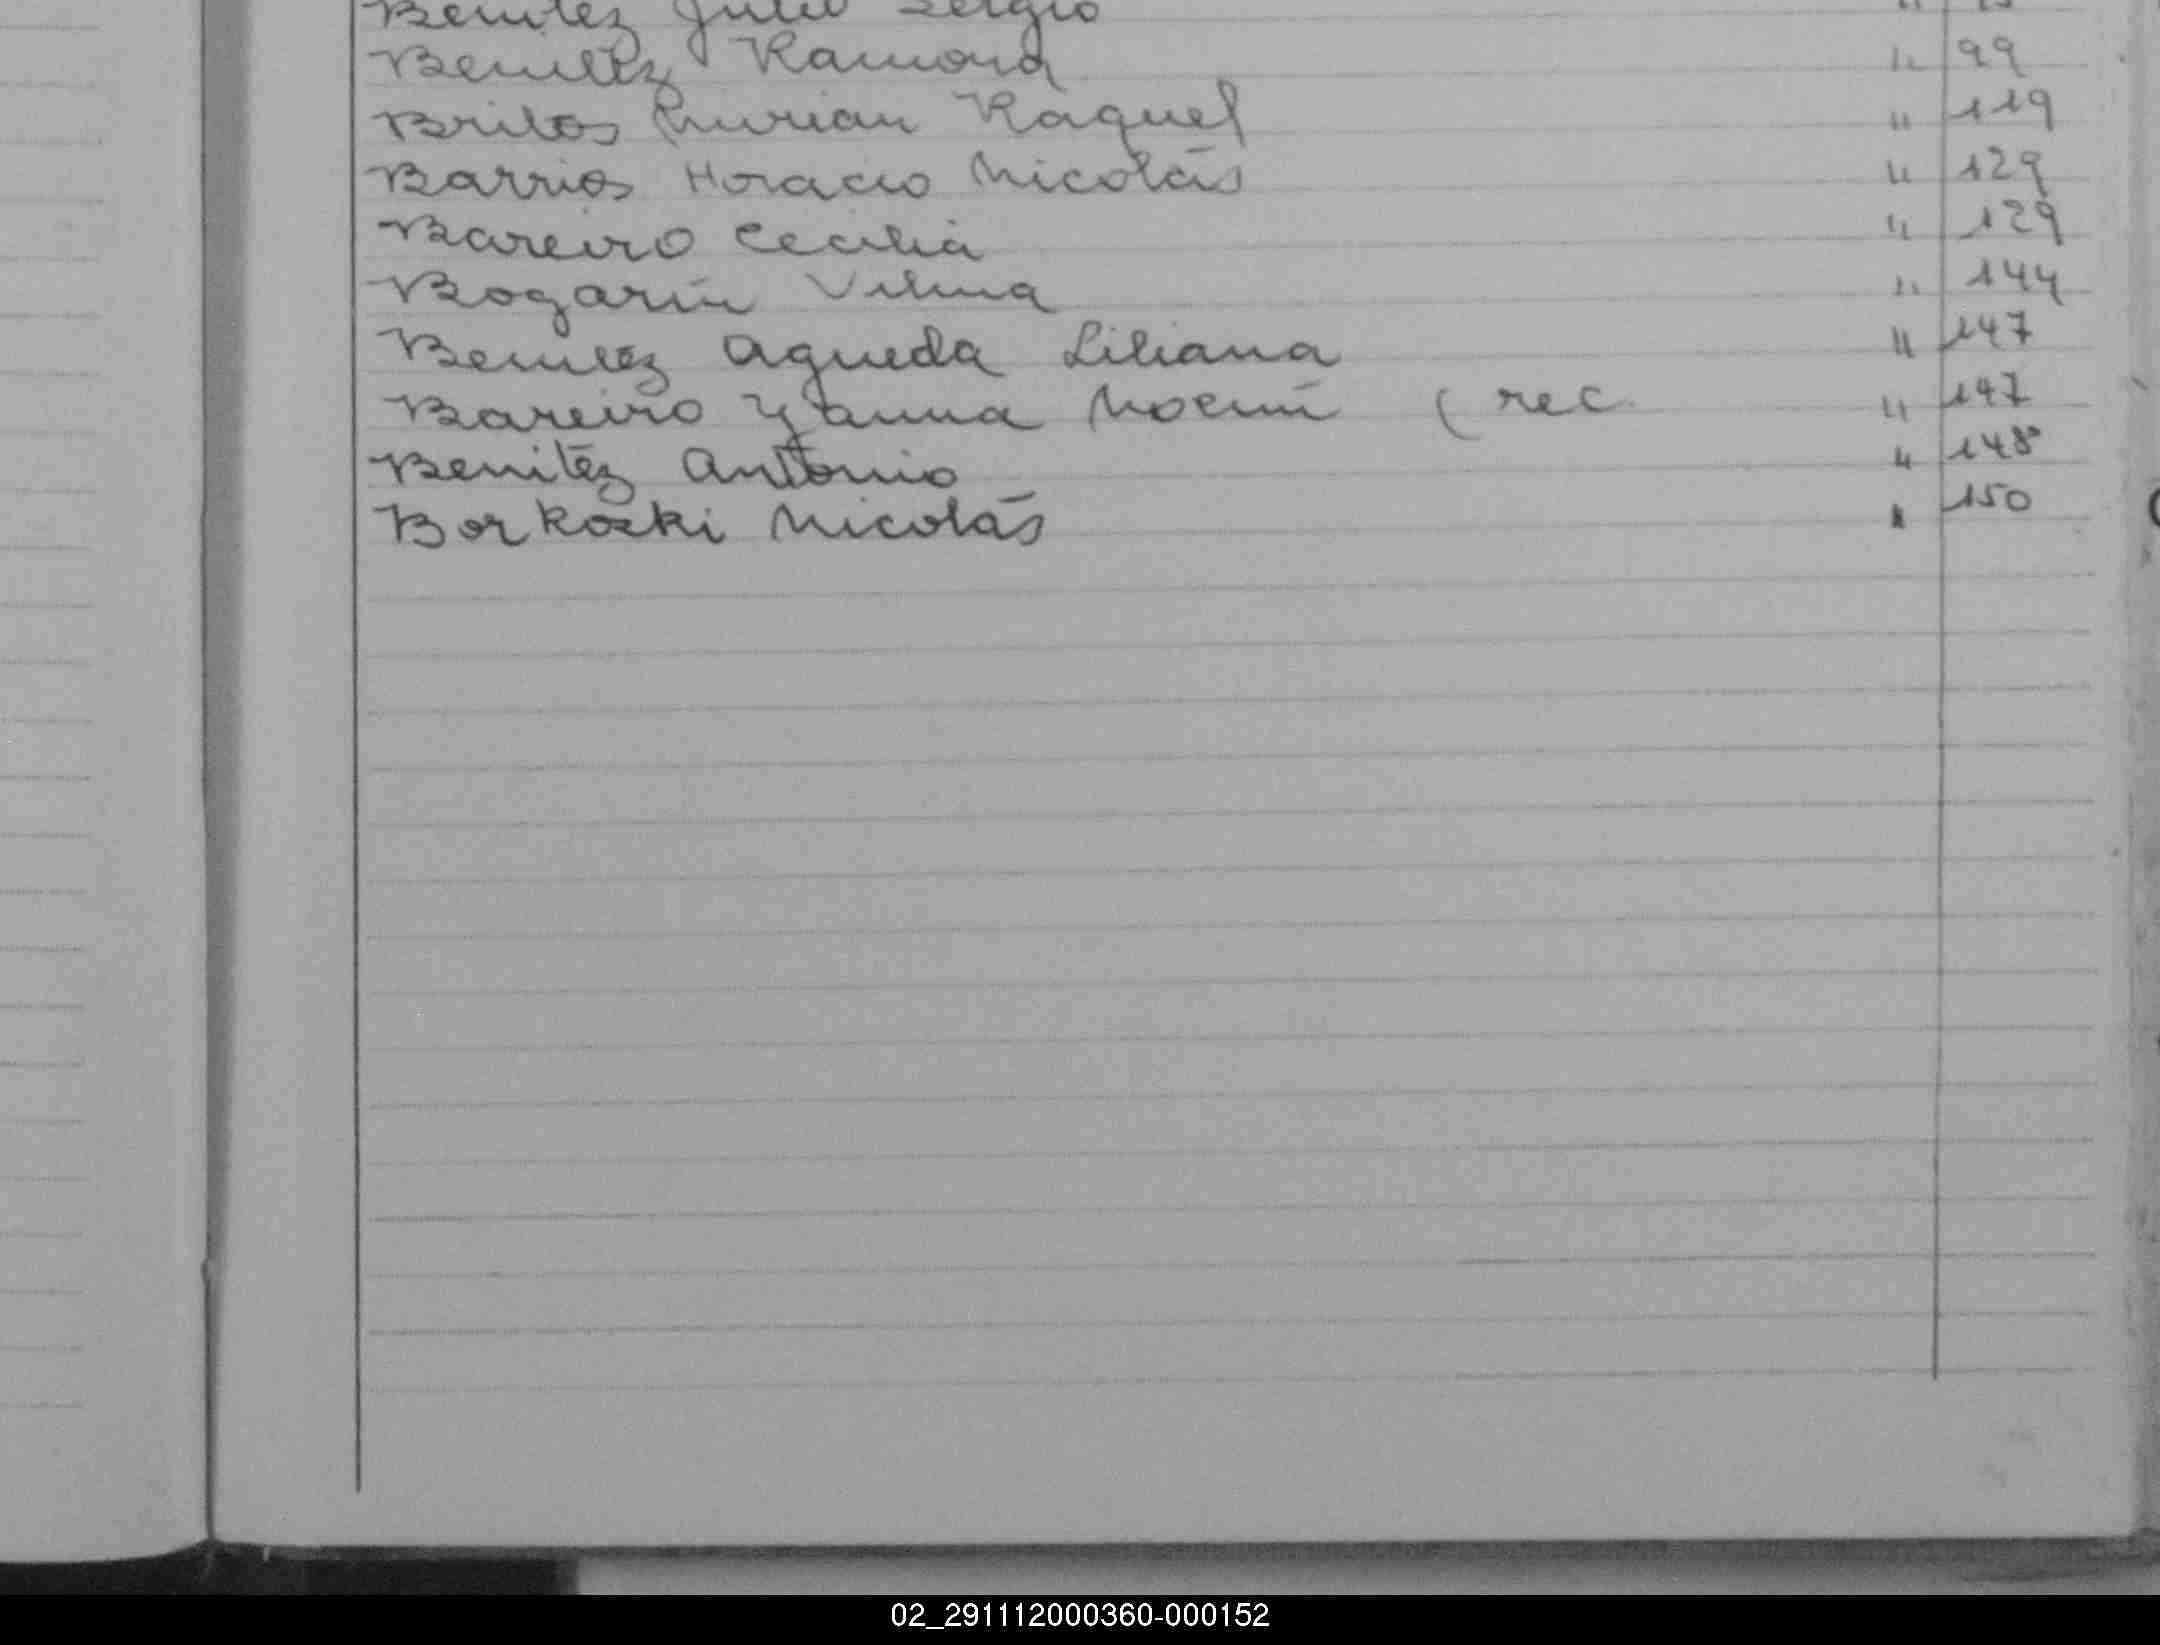 Benitez Julio Sergio
Benitez Ramona " 99
Britos Mirian Raquel " 119
Barrios Horacio Nicolás " 129
Bareiro Cecilia " 129
Bogarín Vilma " 144
Benitez Agueda Liliana " 147
Bareiro Yanina Noemí ( rec. " 147
Benitéz Antonio " 148
Borkoski Nicolás " 150
02_291112000360-000152